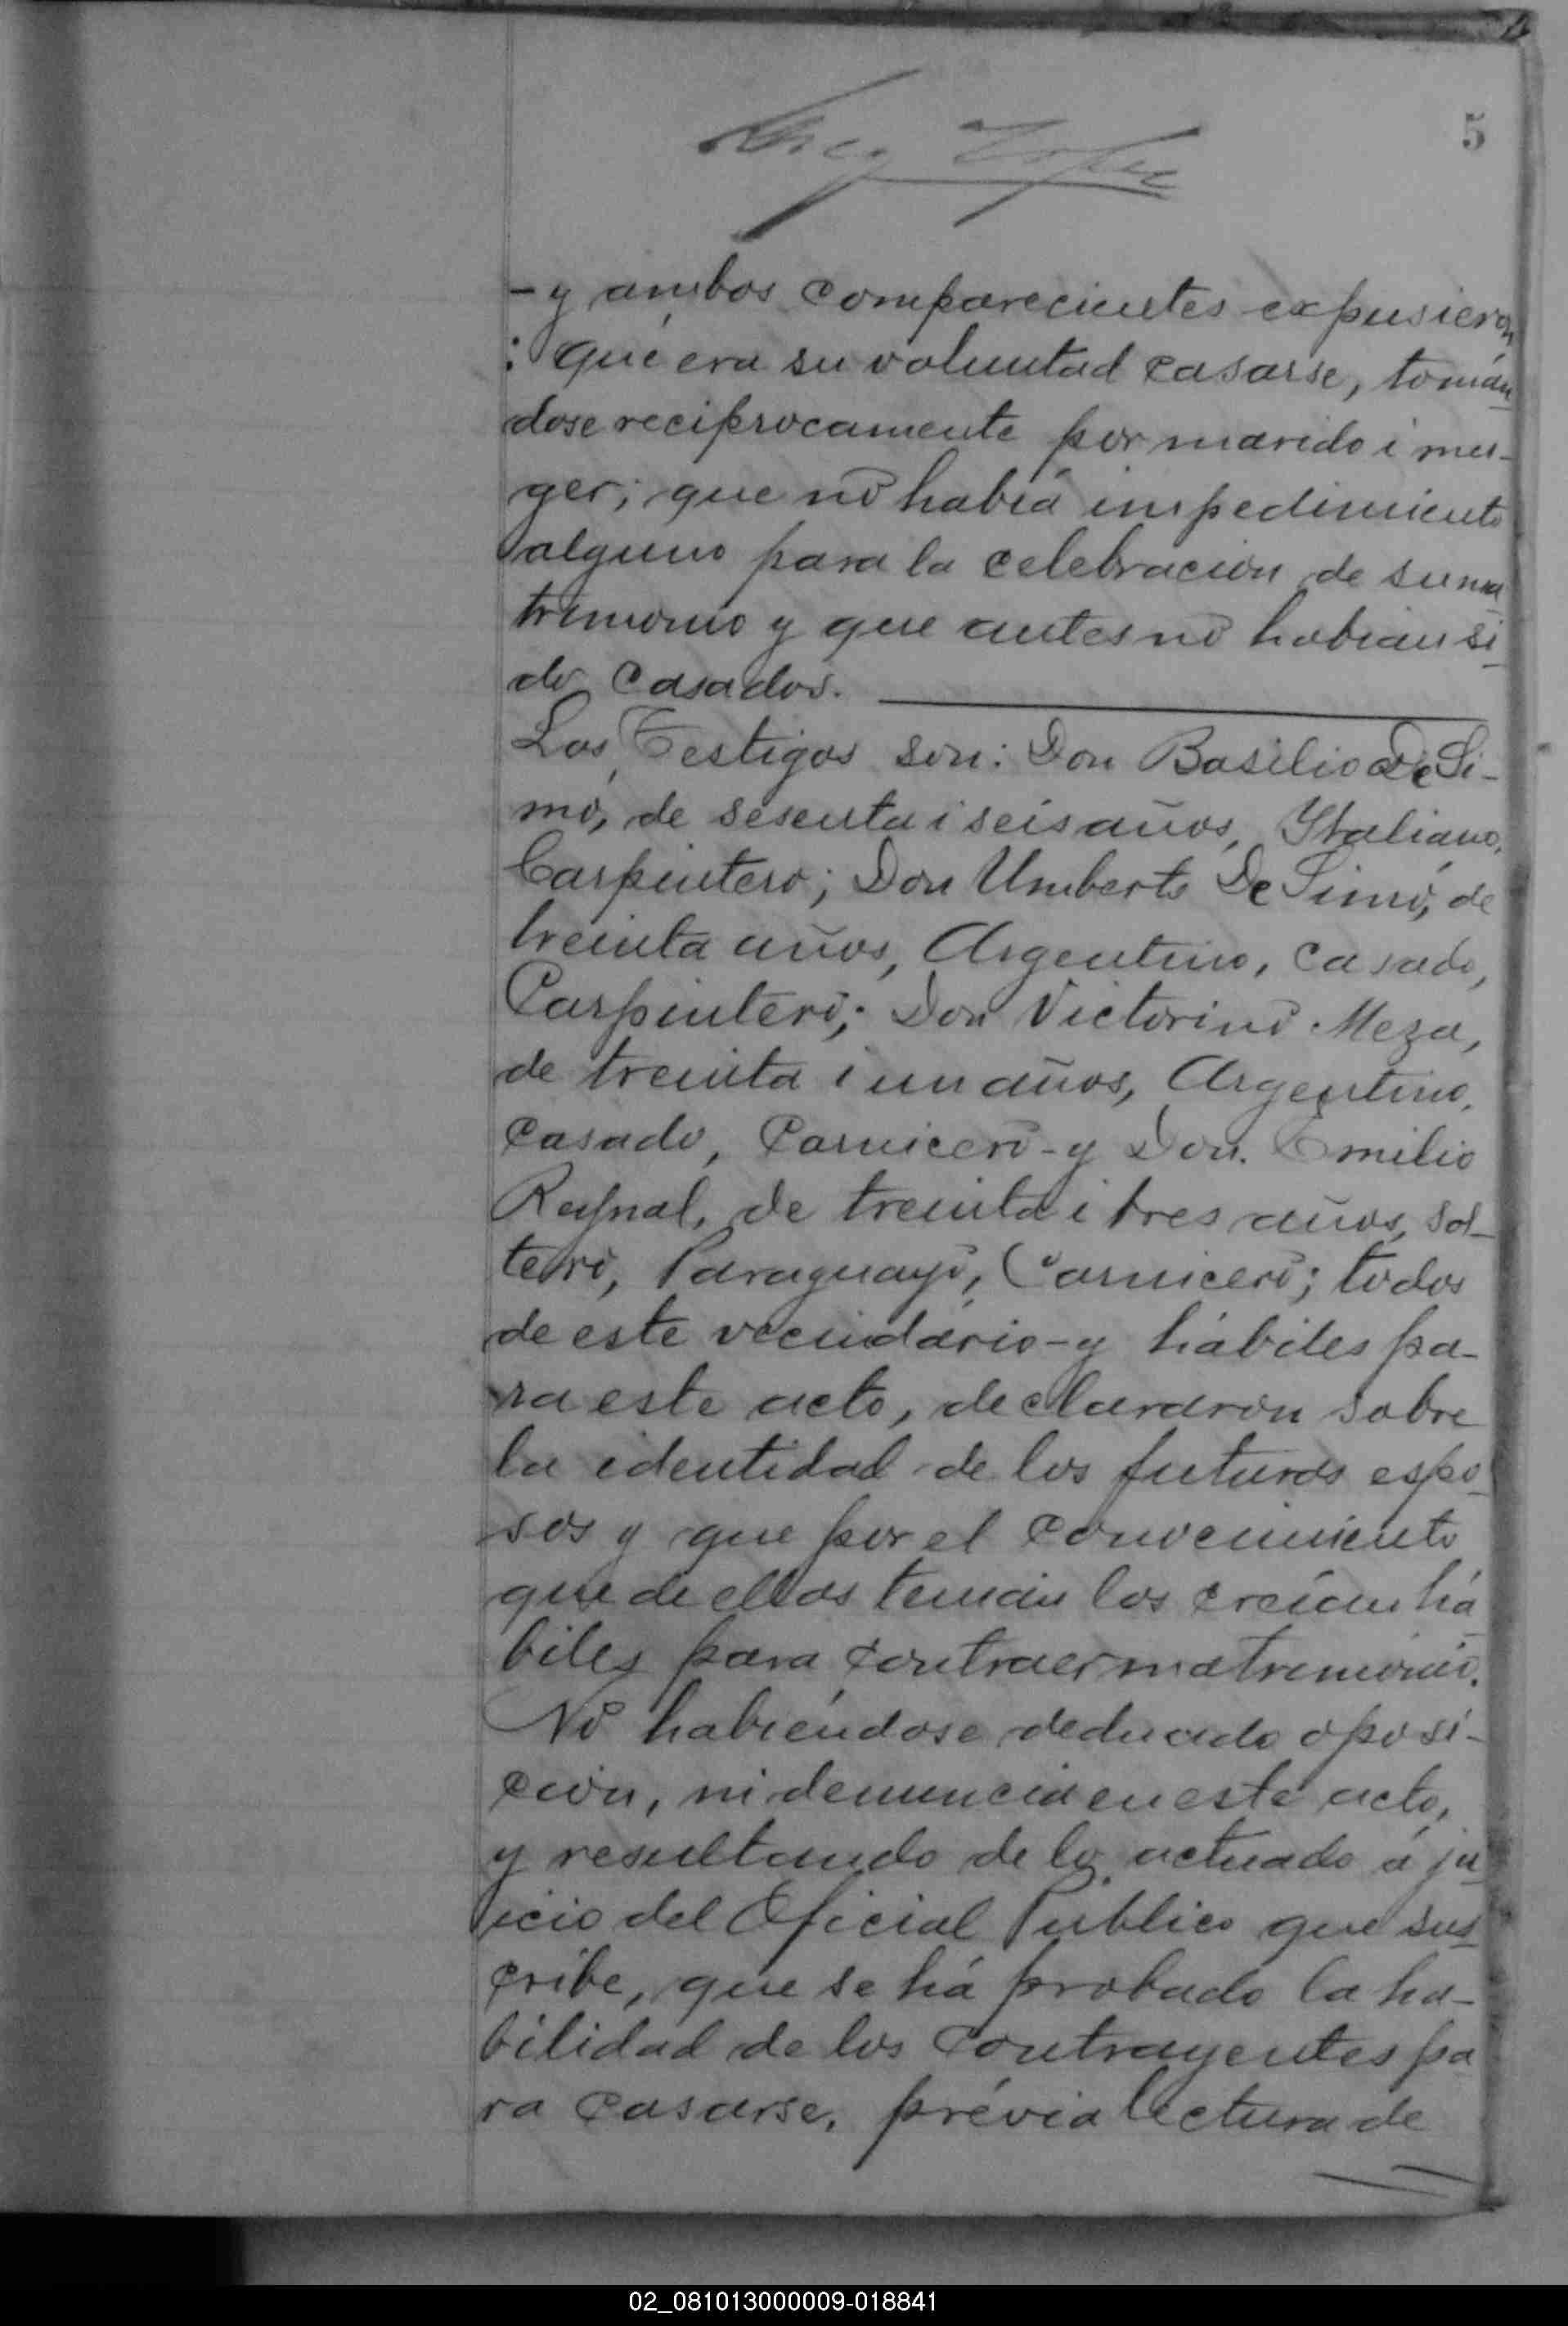 5
- y ambos comparecientes expusieron
: que era su voluntad casarse, tomán
dose reciprocamente por marido i mu-
ger; que no habiá impedimiento
alguno para la celebración de su ma
trimonio y que antes no habian si
do casados.
Los Testigos son: Don Basilio De Si-
mó, de sesenta i seis años, Italiano,
Carpintero; Don Umberto De Simó, de
treinta años, Argentino, casado,
Carpintero; Don Victorino Meza,
de treinta i un años, Argentino,
casado, Carnicero - y Don. Emilio
Raynal, de treinta i tres años, sol-
tero, Paraguayo, Carnicero; todos
de este vecindário - y hábiles pa-
ra este acto, declararon sobre
la identidad de los futuros espo
sos y que por el conocimiento
que de ellos tenián los creían há
biles para contraer matrimonio.
No habiéndose deducido oposi-
ción, ni denuncia en este acto,
y resultando de lo actuado á ju
icio del Oficial Publico que sus
cribe, que se há probado la ha-
bilidad de los contrayentes pa
ra casarse, prévia lectura de
02_081013000009-018841